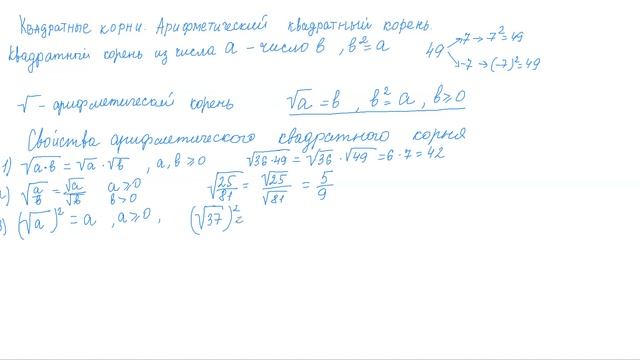 Квадратные корни. Арифметический квадратный корень.
Квадратный корень из числа a - число b, b²=a
49 → 7 → 7²=49
→ -7 → (-7)²=49
√ - арифметический корень √a = b, b²=a, b≥0
Свойства арифметического квадратного корня
1) √(a·b) = √a · √b, a,b≥0 √(36·49) = √36 · √49 = 6·7 = 42
2) √(a/b) = √a/√b a≥0 b>0 √(25/81) = √25/√81 = 5/9
3) (√a)² = a, a≥0, (√37)² =